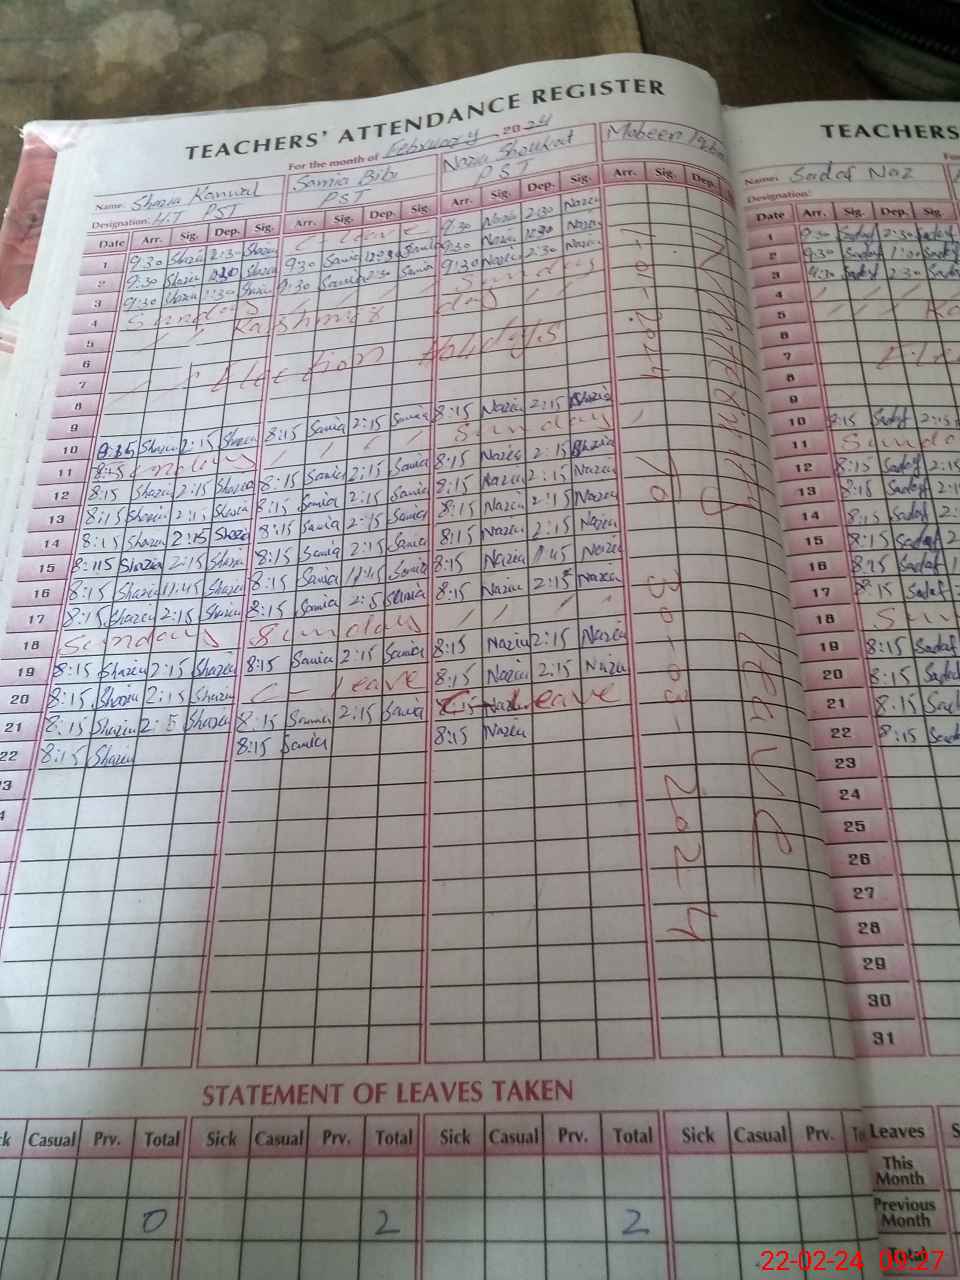 TEACHERS' ATTENDANCE REGISTER
For the month of February 2024
Name: Shazia Kanwal Samia Bibi Nazia Shoukat Mobeen
Designation: PST PST PST
Date Arr. Sig. Dep. Sig. Arr. Sig. Dep. Sig. Arr. Sig. Dep. Sig. Arr. Sig. Dep.
1 9:30 Shazia 2:30 Shazia C-leave 9:30 Nazia 2:30 Nazia
2 9:30 Shazia Shazia 9:30 Samia Samia 9:30 Nazia Nazia
3 9:30 Shazia Shazia 9:30 Samia 2:30 Samia 9:30 Nazia 2:30 Nazia
4 Sunday Sunday
5 Kashmir day
6
7 Election Holidays
8
9
10 Shazia 2:15 Shazia 8:15 Samia 2:15 Samia 8:15 Nazia 2:15
11 Sunday Sunday
12 8:15 Shazia 2:15 Shazia 8:15 Samia 2:15 Samia 8:15 Nazia 2:15
13 8:15 Shazia 2:15 Shazia 8:15 Samia 2:15 Samia 8:15 Nazia 2:15 Nazia
14 8:15 Shazia 2:15 Shazia 8:15 Samia 2:15 Samia 8:15 Nazia 2:15 Nazia
15 8:15 Shazia 2:15 Shazia 8:15 Samia 2:15 Samia 8:15 Nazia 2:15 Nazia
16 8:15 Shazia 11:45 Shazia 8:15 Samia 11:45 Samia 8:15 Nazia 11:45 Nazia
17 8:15 Shazia 2:15 Shazia 8:15 Samia Samia 8:15 Nazia 2:15 Nazia
18 Sunday Sunday
19 8:15 Shazia 2:15 Shazia 8:15 Samia 2:15 Samia 8:15 Nazia 2:15 Nazia
20 8:15 Shazia 2:15 Shazia C-leave 8:15 Nazia 2:15 Nazia
21 8:15 Shazia Shazia 8:15 Samia 2:15 Samia C-leave
22 8:15 Shazia 8:15 Samia 8:15 Nazia
2024
To
30-03-2024
Leave
STATEMENT OF LEAVES TAKEN
Casual Prv. Total Sick Casual Prv. Total Sick Casual Prv. Total Sick Casual Prv.
0 2 2
TEACHERS
Name: Sadaf Naz
Designation:
Date Arr. Sig. Dep. Sig.
1 9:30 Sadaf 2:30 Sadaf
2 9:30 Sadaf Sadaf
3 9:30 Sadaf 2:30 Sadaf
4
5
6
7
8
9
10 8:15 Sadaf 2:15
11
12 8:15 Sadaf 2:15
13 8:15 Sadaf
14 8:15 Sadaf
15 8:15 Sadaf
16 8:15 Sadaf
17 8:15 Sadaf
18
19 8:15 Sadaf
20 8:15
21 8:15
22 8:15
23
24
25
26
27
28
29
30
31
Leaves
This Month
Previous Month
Total
22-02-24 09:27